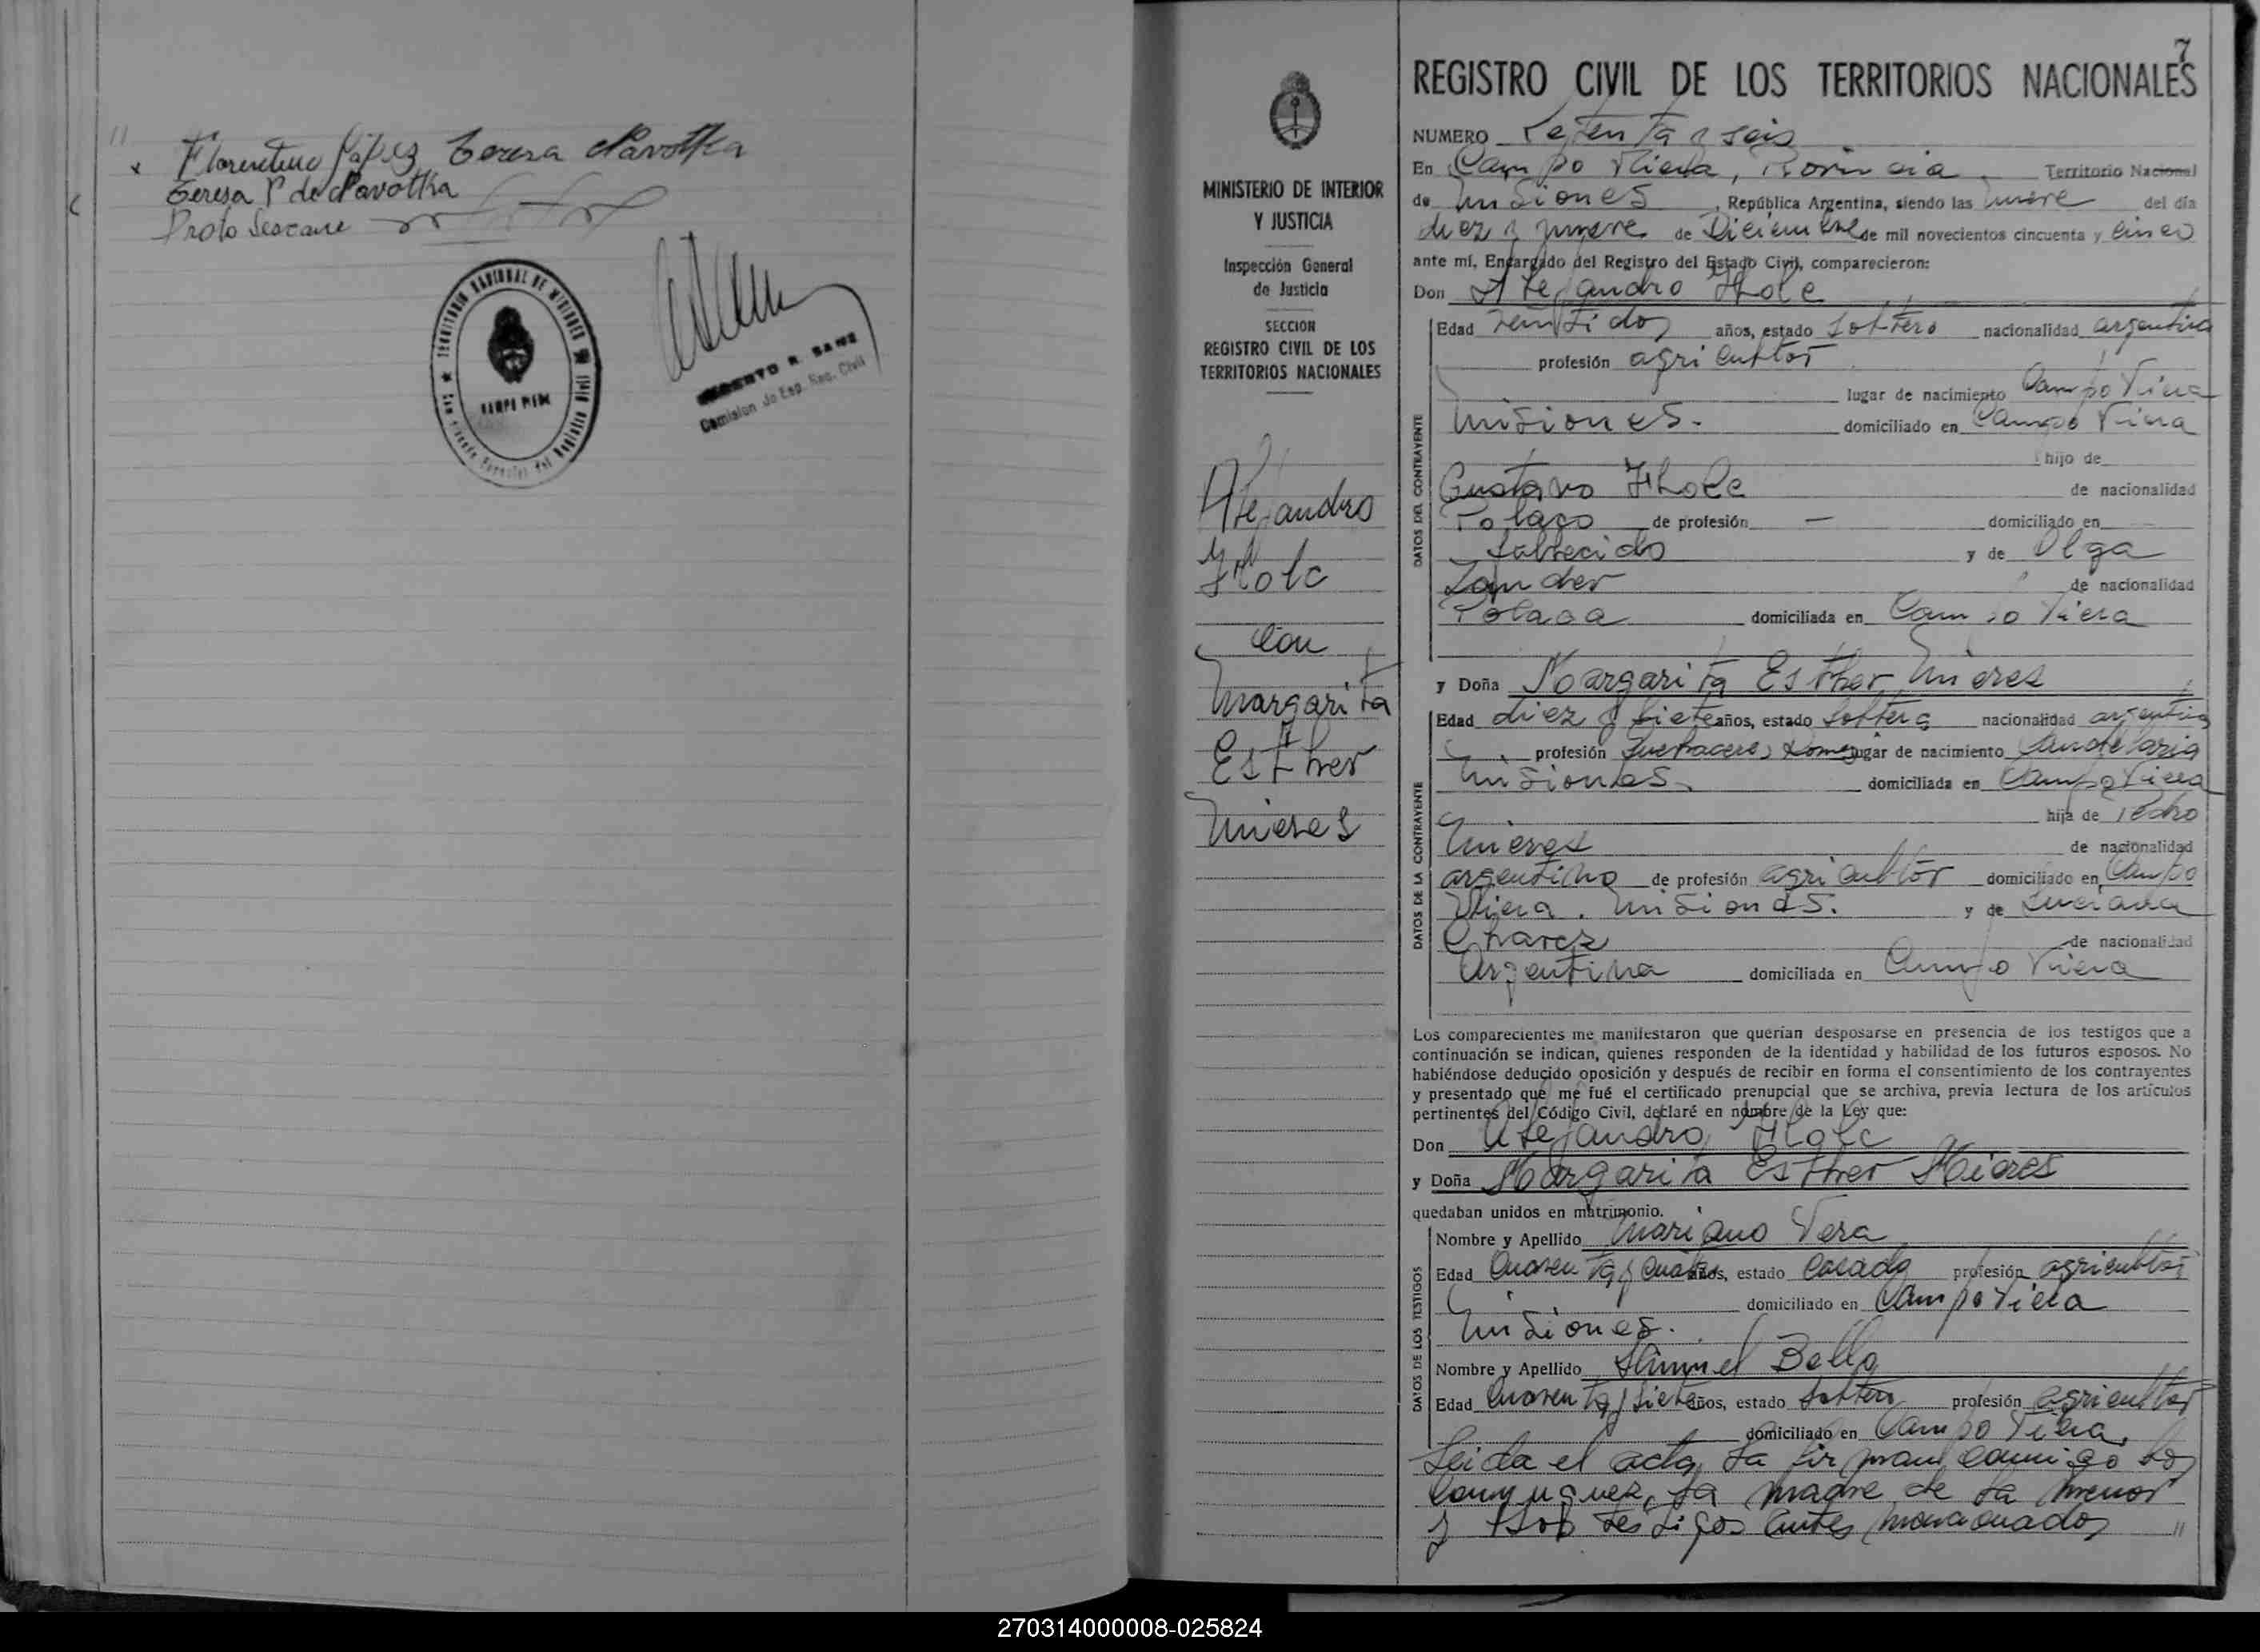 //
Florentino López Teresa Pavotka
Teresa P de Pavotka
TERRITORIO NACIONAL DE MISIONES
ROBERTO R. SANZ
Comision de Esp. Reg. Civil
7
REGISTRO CIVIL DE LOS TERRITORIOS NACIONALES
MINISTERIO DE INTERIOR
Y JUSTICIA
Inspección General
de Justicia
SECCION
REGISTRO CIVIL DE LOS
TERRITORIOS NACIONALES
Alejandro
con
Margarita
Esther
Mieres
NUMERO Setenta y seis
En Campo Viera, Provincia Territorio Nacional
de Misiones, República Argentina, siendo las nueve del día
diez y nueve de Diciembre de mil novecientos cincuenta y cinco
ante mí, Encargado del Registro del Estado Civil, comparecieron:
Don Alejandro
DATOS DEL CONTRAYENTE
Edad veintidos años, estado soltero nacionalidad argentina
profesión agricultor
lugar de nacimiento Campo Viera
Misiones. domiciliado en Campo Viera
hijo de
Gustavo de nacionalidad
Polaco de profesión — domiciliado en
fallecido y de Olga
Zander de nacionalidad
Polaca domiciliada en Campo Viera
y Doña Margarita Esther Mieres
DATOS DE LA CONTRAYENTE
Edad diez y siete años, estado soltera nacionalidad argentina
profesión quehaceres Domes lugar de nacimiento Candelaria
Misiones. domiciliada en Campo Viera
hija de Pedro
Mieres de nacionalidad
argentino de profesión agricultor domiciliado en Campo
Viera. Misiones. y de Luciana
Chavez de nacionalidad
Argentina domiciliada en Campo Viera
Los comparecientes me manifestaron que querían desposarse en presencia de los testigos que a
continuación se indican, quienes responden de la identidad y habilidad de los futuros esposos. No
habiéndose deducido oposición y después de recibir en forma el consentimiento de los contrayentes
y presentado que me fué el certificado prenupcial que se archiva, previa lectura de los artículos
pertinentes del Código Civil, declaré en nombre de la Ley que:
Don Alejandro
y Doña Margarita Esther Mieres
quedaban unidos en matrimonio.
DATOS DE LOS TESTIGOS
Nombre y Apellido Mariano Vera
Edad Cuarenta y cuatro años, estado Casado profesión agricultor
domiciliado en Campo Viera
Misiones.
Nombre y Apellido Bello
Edad Cuarenta y siete años, estado soltero profesión agricultor
domiciliado en Campo Viera.
Leida el acta, la firman conmigo los
conyuguez, la madre de la menor
y los testigos antes mencionados //
270314000008-025824